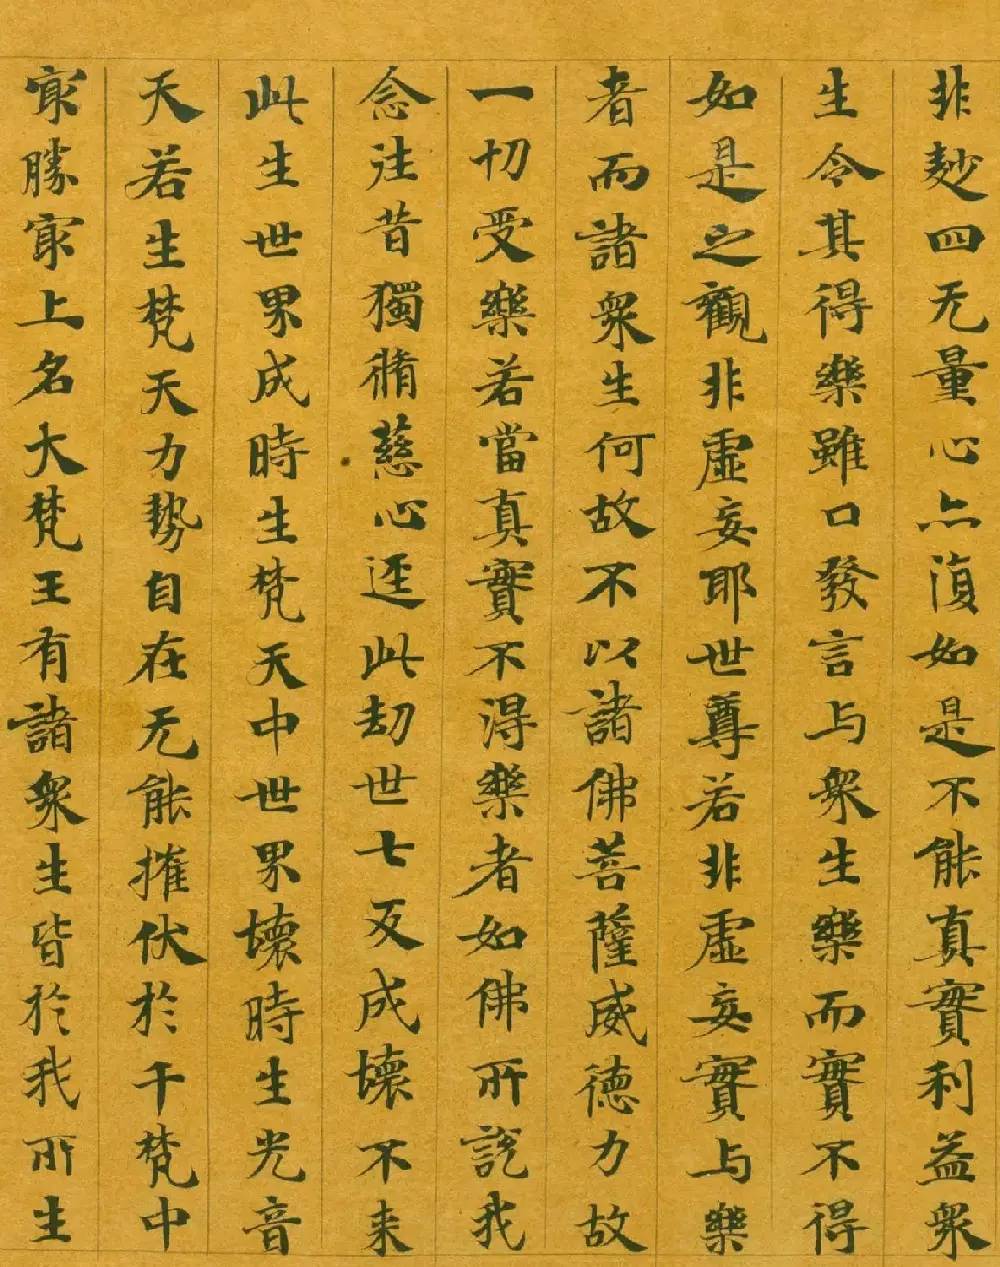 非麨四无量心亦復如是不能真實利益衆
生令其得樂雖口發言与衆生樂而實不得
如是之觀非虛妄耶世尊若非虛妄實与樂
者而諸衆生何故不以諸佛菩薩威德力故
一切受樂若當真實不得樂者如佛所說我
念往昔獨脩慈心逕此劫世七反成壞不来
此生世界成時生梵天中世界壞時生光音
天若生梵天力勢自在无能摧伏於千梵中
㝡勝㝡上名大梵王有諸衆生皆於我所生